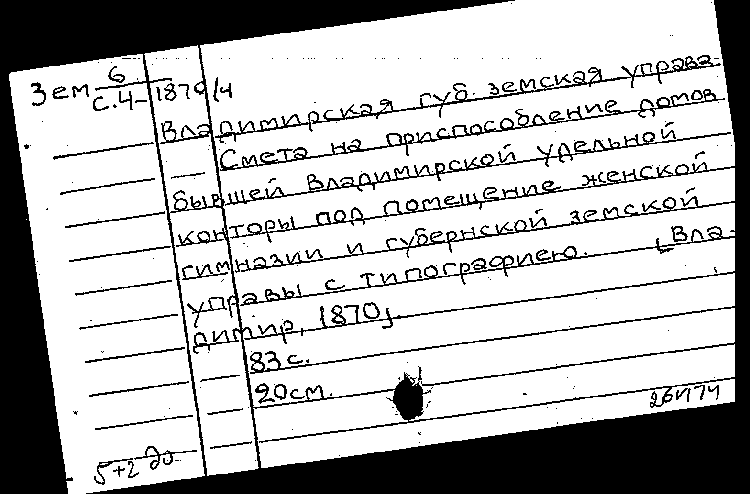 Зем 6
С.4-1870/4
Владимирская губ. земская управа.
Смета на приспособление домов
бывшей Владимирской удельной
конторы под помещение женской
гимназии и губернской земской
управы с типографиею. [Вла-
димир, 1870].
83 с.
20 см.
5+2 до